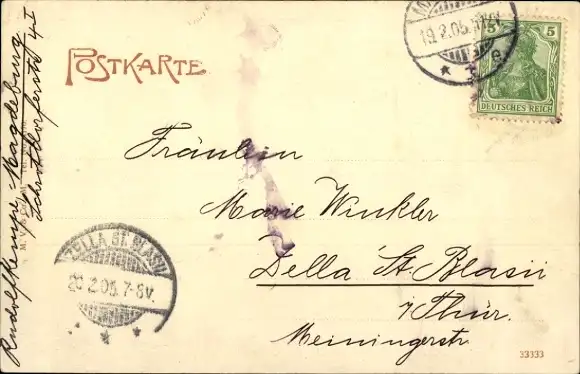 POSTKARTE
19.2.05.
5 5
DEUTSCHES REICH
Fräulein
Marie Winkler
Zella St. Blasii
i/Thür.
Meiningerstr.
ZELLA ST. BLASII
20.2.05. 7-8V.
Rudolf Kempe Magdeburg
Schrotdorferstr
33333